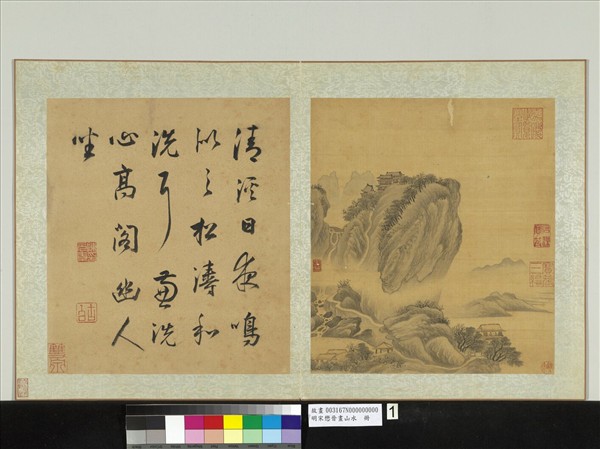 清日夜鳴
松濤和
洗耳兼洗
心高閣幽人
坐
故畫 003167N000000000
明宋懋晉畫山水 冊
1